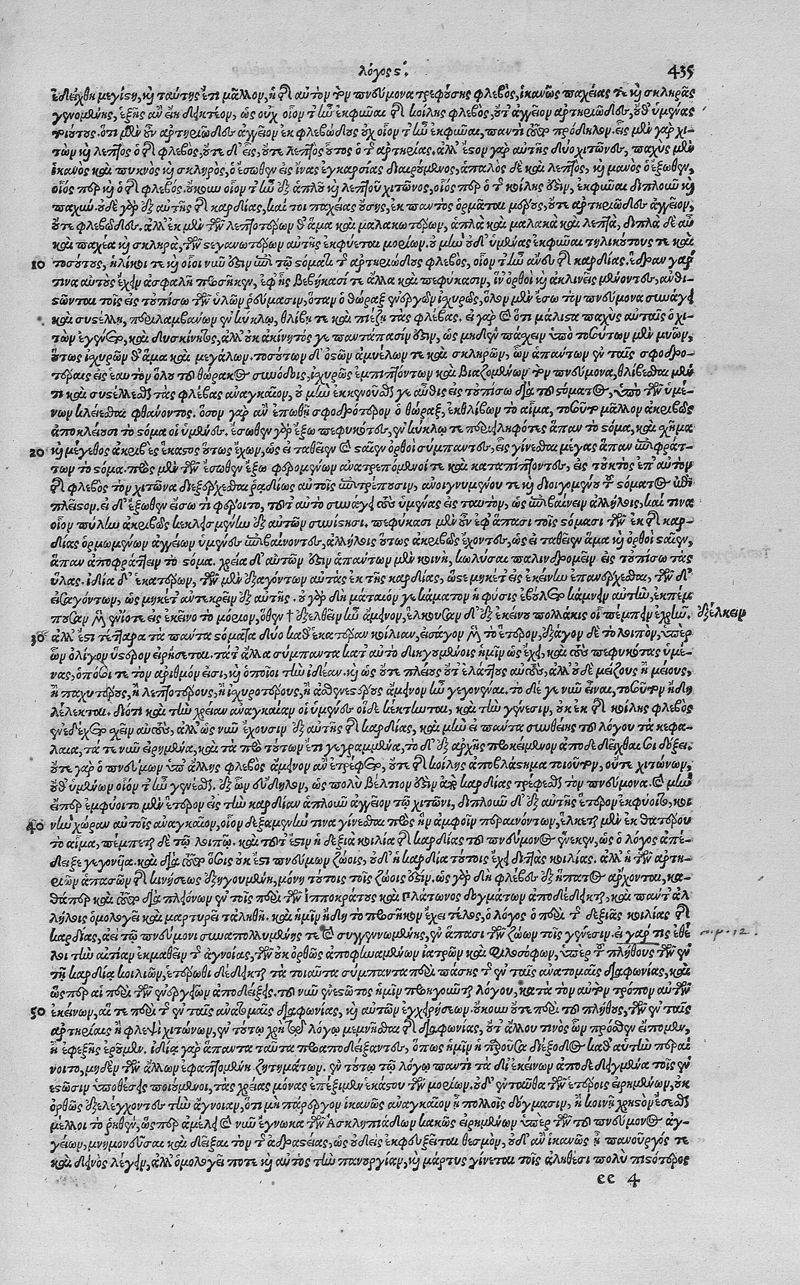 λόγος ϛ΄. 435
ἐδείχθη μεγίστη, καὶ ταύτης ἔτι μᾶλλον, ἡ τῆς αὐτὸν τὸν πνεύμονα τρεφούσης φλεβὸς, ἱκανῶς παχείας τε καὶ σκληρᾶς
γινομένης, ἑξῆς ἂν εἴη δεικτέον, ὡς οὐχ οἷόν τ' ἦν ἐκφῦναι τῆς κοίλης φλεβὸς, οὔτ' ἀγγεῖον ἀρτηριῶδες, οὔθ' ὑμένας
τριττούς. ὅτι μὲν οὖν ἀρτηριῶδες ἀγγεῖον ἐκ φλεβώδους οὐχ οἷόν τ' ἦν ἐκφῦναι, παντί που πρόδηλον. εἷς μὲν γὰρ χι-
τὼν καὶ λεπτὸς ὁ τῆς φλεβὸς, οὔτε δ' εἷς, οὔτε λεπτὸς οὗτος ὁ τῆς ἀρτηρίας. ἀλλ' ἔστον γὰρ αὐτῆς δύο χιτῶνες, παχὺς μὲν
ἱκανῶς καὶ πυκνὸς καὶ σκληρὸς, ὁ ἔσωθεν εἰς ἶνας ἐγκαρσίας διαιρούμενος, ἁπαλὸς δὲ καὶ λεπτὸς, καὶ μανὸς ὁ ἔξωθεν,
οἷός περ καὶ ὁ τῆς φλεβός. οὔκουν οἷόν τ' ἦν ἐξ ἁπλοῦ καὶ λεπτοῦ χιτῶνος, οἷός περ ὁ τῆς κοίλης ἐστὶν, ἐκφῦναι διπλοῦν καὶ
παχύν. οὐδὲ γὰρ ἐξ αὐτῆς τῆς καρδίας, καί τοι παχείας οὔσης, ἐκ παντὸς ὁρμᾶται μέρους, οὔτε ἀρτηριῶδες ἀγγεῖον,
οὔτε φλεβῶδες. ἀλλ' ἐκ μὲν τῶν λεπτοτέρων θ' ἅμα καὶ μαλακωτέρων, ἁπλᾶ καὶ μαλακὰ καὶ λεπτὰ, διπλᾶ δὲ αὖ
καὶ παχέα καὶ σκληρὰ, τῶν στεγανωτέρων αὐτῆς ἐκφύεται μορίων. οὐ μὴν οὐδ' ὑμένας ἐκφῦναι τηλικούτους τε καὶ
10 τοσούτους, ἡλίκοι τε καὶ οἷοι νῦν εἰσιν ἐπὶ τῷ στόματι τῆς ἀρτηριώδους φλεβὸς, οἷόν τ' ἦν ἄνευ τῆς καρδίας. ἕδραν γάρ
τινα αὐτοὺς ἔχειν ἀσφαλῆ προσῆκεν, ἐφ' ἧς βεβήκασί τε ἄλλα καὶ πεφύκασιν, ἵν' ὀρθοὶ καὶ ἀκλινεῖς μένοντες, ἀνθι-
στῶνται τοῖς εἰς τοὐπίσω τῶν ὑλῶν ῥεύμασιν, ὅταν ὁ θώραξ ἐνεργῶν ἰσχυρῶς, ὅλον μὲν ἔσω τὸν πνεύμονα συνάγῃ
καὶ συστέλλῃ, περιλαμβάνων ἐν κύκλῳ, θλίβῃ τε καὶ πιέζῃ τὰς φλέβας. εἰ γὰρ καὶ ὅτι μάλιστα παχὺς αὐταῖς ὁ χι-
τὼν ἐγένετο, καὶ δυσκίνητος, ἀλλ' οὐκ ἀκίνητός γε παντάπασίν ἐστιν, ὡς μηδὲν πάσχειν ὑπὸ τούτων μὲν μυῶν,
οὕτως ἰσχυρῶν θ' ἅμα καὶ μεγάλων. τοσούτων δ' ὀστῶν ἀμυέλων τε καὶ σκληρῶν, ὧν ἁπάντων ἐν ταῖς σφοδρο-
τέραις εἰς ἑαυτὸν ὅλου τοῦ θώρακος συνόδοις, ἰσχυρῶς ἐμπιπτόντων καὶ βιαζομένων τὸν πνεύμονα, θλίβεσθαι μέν
τι καὶ συστέλλεσθαι τὰς φλέβας ἀναγκαῖον, οὐ μὴν ἐκκενοῦσθαί γε αὖθις εἰς τοὐπίσω διὰ τοῦ στόματος, ὑπὸ τῶν ὑμέ-
νων κλείεσθαι φθάνοντος. ὅσον γὰρ ἂν ἐπωθῇ σφοδρότερον ὁ θώραξ, ἐκθλίβων τὸ αἷμα, τοσοῦτον μᾶλλον ἀκριβῶς
ἀποκλείουσι τὸ στόμα οἱ ὑμένες. ἔσωθεν γὰρ ἔξω πεφυκότες, ἐν κύκλῳ τε περιειληφότες ἅπαν τὸ στόμα, καὶ σχῆμα
20 καὶ μέγεθος ἀκριβὲς ἕκαστος οὕτως ἔχων, ὡς εἰ ταθεῖεν καὶ σταῖεν ὀρθοὶ σύμπαντες, εἷς γίνεσθαι μέγας ἅπαν ἐπιφράτ-
των τὸ στόμα. πρὸς μὲν τῶν ἔσωθεν ἔξω φερομένων ἀνατρεπόμενοί τε καὶ καταπίπτοντες, εἰς τοὐκτὸς ἐπ' αὐτὸν
τῆς φλεβὸς τὸν χιτῶνα διεξέρχεσθαι ῥᾳδίως αὐτοῖς ἐπιτρέπουσιν, ἀνοιγνυμένου τε καὶ διοιγομένου τοῦ στόματος ἐπὶ
πλεῖστον. εἰ δ' ἔξωθεν εἴσω τι φέροιτο, τοῦτ' αὐτὸ συνάγει τοὺς ὑμένας εἰς ταὐτὸν, ὡς ἐπιβαίνειν ἀλλήλοις, καί τινα
οἷον πύλην ἀκριβῶς κεκλεισμένην ἐξ αὐτῶν συνίστησι. πεφύκασι μὲν οὖν ἐφ' ἅπασι τοῖς στόμασι τῶν ἐκ τῆς καρ-
δίας ὁρμωμένων ἀγγείων ὑμένες ἐπιβαίνοντες, ἀλλήλοις οὕτως ἀκριβῶς ἔχοντες, ὡς εἰ ταθεῖεν ἅμα καὶ ὀρθοὶ σταῖεν,
ἅπαν ἀποφράττειν τὸ στόμα. χρεία δ' αὐτῶν ἐστιν ἁπάντων μὲν κοινὴ, κωλῦσαι παλινδρομεῖν εἰς τοὐπίσω τὰς
ὕλας. ἰδία δ' ἑκατέρων, τῶν μὲν ἐξαγόντων αὐτὰς ἐκ τῆς καρδίας, ὥστε μηκέτ' εἰς ἐκείνην ἐπανέρχεσθαι, τῶν δ'
εἰσαγόντων, ὡς μηκέτ' ἀντεκρεῖν ἐξ αὐτῆς. οὐ γὰρ δὴ μάταιόν γε κάματον ἡ φύσις ἐβούλετο κάμνειν αὐτὴν, ἐκπέμ-
πουσάν μὲν ἐνίοτε εἰς ἐκεῖνο τὸ μόριον, ὅθεν † ἐξελθεῖν ἦν ἄμεινον, ἕλκουσαν δ' ἐξ ἐκείνου πολλάκις οἷ πέμπειν ἐχρῆν. ἐξέλκειν
30 ἀλλ' ἔστι τέτταρα τὰ πάντα στόματα δύο καθ' ἑκατέραν κοιλίαν, εἰσάγον μὲν τὸ ἕτερον, ἐξάγον δὲ τὸ λοιπὸν, ὑπὲρ
ὧν ὀλίγον ὕστερον εἰρήσεται. τά τ' ἄλλα σύμπαντα κατ' αὐτὸ διηγουμένοις ἡμῖν ὡς ἔχει, καὶ τοὺς πεφυκότας ὑμέ-
νας, ὁπόσοι τε τὸν ἀριθμόν εἰσι, καὶ ὁποῖοι τὴν ἰδέαν. καὶ ὡς οὔτε πλείους οὔτ' ἐλάττους αὐτοὺς, ἀλλ' οὐδὲ μείζους ἢ μείους,
ἢ παχυτέρους, ἢ λεπτοτέρους, ἢ ἰσχυροτέρους, ἢ ἀσθενεστέρους ἄμεινον ἦν γεγονέναι. τὸ δέ γε νῦν εἶναι, τοσοῦτον ἤδη
λέλεκται. διότι καὶ τὴν χρείαν ἀναγκαίαν οἱ ὑμένες οἵδε κέκτηνται, καὶ τὴν γένεσιν, οὐκ ἐκ τῆς κοίλης φλεβὸς
ἐνεδέχετο σχεῖν αὐτοὺς, ἀλλ' ὡς νῦν ἔχουσιν ἐξ αὐτῆς τῆς καρδίας, καὶ μὴν εἰ πάντα συνθείης τοῦ λόγου τὰ κεφά-
λαια, τά τε νῦν εἰρημένα, καὶ τὰ πρὸ τούτων ἔτι γεγραμμένα, τὸ δ' ἐξ ἀρχῆς προκείμενον ἀποδεδεῖχθαί σοι δόξει.
οὔτε γὰρ ὁ πνεύμων ὑπ' ἄλλης φλεβὸς ἄμεινον ἂν ἐτρέφετο, οὔτε τῆς κοίλης ἀποβλάστημα τοιοῦτον, οὔτε χιτώνων,
οὔθ' ὑμένων οἷόν τ' ἦν γενέσθαι. ἐξ ὧν εὔδηλον, ὡς πολὺ βέλτιόν ἐστιν ἀπὸ καρδίας τρέφεσθαι τὸν πνεύμονα. καὶ μὴν
εἴπερ ἐμφύοιτο μὲν ἕτερον εἰς τὴν καρδίαν ἁπλοῦν ἀγγεῖον τῷ χιτῶνι, διπλοῦν δ' ἐξ αὐτῆς ἕτερον ἐκφύοιτο, κοι-
40 νὴν χώραν αὐτοῖς ἀναγκαῖον, οἷον δεξαμενήν τινα γίνεσθαι πρὸς ἣν ἀμφοῖν περαινόντων, ἕλκεται μὲν ἐκ θατέρου
τὸ αἷμα, πέμπεται δὲ τῷ λοιπῷ. καὶ τοῦτ' ἔστιν ἡ δεξιὰ κοιλία τῆς καρδίας τοῦ πνεύμονος ἕνεκεν, ὡς ὁ λόγος ἀπέ-
δειξε γεγονυῖα. καὶ διὰ τοῦθ' ὅσοις οὐκ ἔστι πνεύμων ζώοις, οὐδ' ἡ καρδία τούτοις ἔχει διττὰς κοιλίας. ἀλλ' ἡ τῶν ἀρτη-
ριῶν ἁπασῶν τῆς κινήσεως ἐξηγουμένη, μόνη τούτοις τοῖς ζώοις ἐστίν. ὡς γὰρ δὴ φλέβες ἐξ ἥπατος ἄρχονται, κα-
θάπερ καὶ τοῦτο διὰ πλειόνων ἐν τοῖς περὶ τῶν Ἱπποκράτους καὶ Πλάτωνος δογμάτων ἀποδέδεικται, καὶ πάντ' ἀλ
λήλοις ὁμολογεῖ καὶ μαρτυρεῖ τἀληθῆ. καὶ ἡμῖν ἤδη τὸ προσῆκον ἔχει τέλος, ὁ λόγος ὁ περὶ τῆς δεξιᾶς κοιλίας τῆς
καρδίας, ἀεὶ τῷ πνεύμονι συναπολλυμένης τε καὶ συγγεννωμένης, ἐν ἅπασι τῶν ζώων τοῖς γένεσιν. εἰ γάρ τις ἐθέ
λοι τὴν αἰτίαν ἐκμαθεῖν τῆς ἀγνοίας, τῶν οὐκ ὀρθῶς ἀποφηναμένων ἰατρῶν καὶ φιλοσόφων, ὑπὲρ τοῦ πλήθους τῶν ἐν
τῇ καρδίᾳ κοιλιῶν, ἑτέρωθι δέδεικται τὰ τοιαῦτα σύμπαντα περὶ πάσης τῆς ἐν ταῖς ἀνατομαῖς διαφωνίας, καὶ
ὥσπερ αἱ περὶ τῶν ἐνεργειῶν ἀποδείξεις. τοῦ νῦν ἐνεστῶτος ἡμῖν προηγοῦνται λόγου, κατὰ τὸν αὐτὸν τρόπον αὐτῶν
50 ἐκείνων, αἵ τε περὶ τῆς ἐν ταῖς ἀνατομαῖς διαφωνίας, καὶ αὐτῶν ἐγχειρήσεων. οὔκουν οὔτε περὶ τοῦ πλήθους, τῶν ἐν ταῖς
ἀρτηρίαις ἢ φλεψὶ χιτώνων, ἐν τούτῳ χρὴ τῷ λόγῳ μεμνῆσθαι τῆς διαφωνίας, οὔτ' ἄλλου τινὸς ὧν πρόσθεν εἴπομεν,
ἢ ἐφεξῆς ἐροῦμεν. ἰδίᾳ γὰρ ἅπαντα ταῦτα προαποδείξαντες, ὅπως ἡμῖν ἡ προὖσα διέξοδος καθ' αὑτὴν περαί
νοιτο, μηδὲν τῶν ἄλλων ἐφαπτομένη ζητημάτων. ἐν τούτῳ τῷ λόγῳ παντὶ τὰ δι' ἐκείνων ἀποδεδειγμένα τοῖς ἐν
εστῶσιν ὑποθέσεις ποιούμενοι, τὰς χρείας μόνας ἐπέξιμεν ἑκάστου τῶν μορίων. οὐδ' ἐνταῦθα τῶν ἑτέροις εἰρημένων, οὐκ
ὀρθῶς ἐξελέγχοντες τὴν ἄγνοιαν, ὅτι μὴ πάρεργον ἱκανῶς ἀναγκαῖον ἢ πολλοῖς δόγμασιν, ἢ κοινῇ χρήσιμον ἔσεσθαι
μέλλοι τὸ ῥηθὲν, ὥσπερ ἀμέλει καὶ νῦν ἔγνωκα τῶν Ἀσκληπιάδῃ κακῶς εἰρημένων ὑπὲρ τῶν τοῦ πνεύμονος ἀγ-
γείων, μνημονεῦσαι καὶ δεῖξαι τὸν τῆς ἀδραστείας, ὡς οὐδεὶς ἐκφεύξεται θεσμὸν, οὐδ' ἂν ἱκανῶς ᾖ πανοῦργός τε
καὶ δεινὸς λέγειν, ἀλλ' ὁμολογεῖ ποτε καὶ αὐτὸς τὴν πανουργίαν, καὶ μάρτυς γίνεται τοῖς ἀληθέσι πολὺ πιστότερος
ςς 4